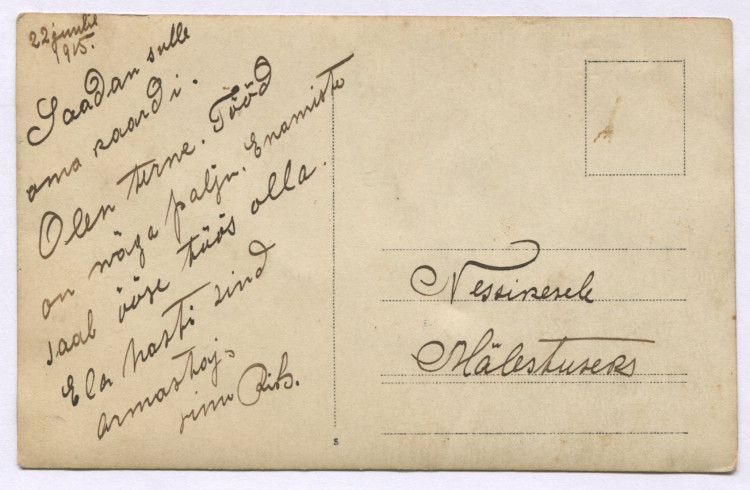 22 juuli
1915.
Saadan sulle
oma kaardi.
Olen terwe. Tööd
on wäga palju. Enamiste
saab ööse töös olla.
Ela hasti sind
armastaj,
Nessikesele
Mälestuseks
S